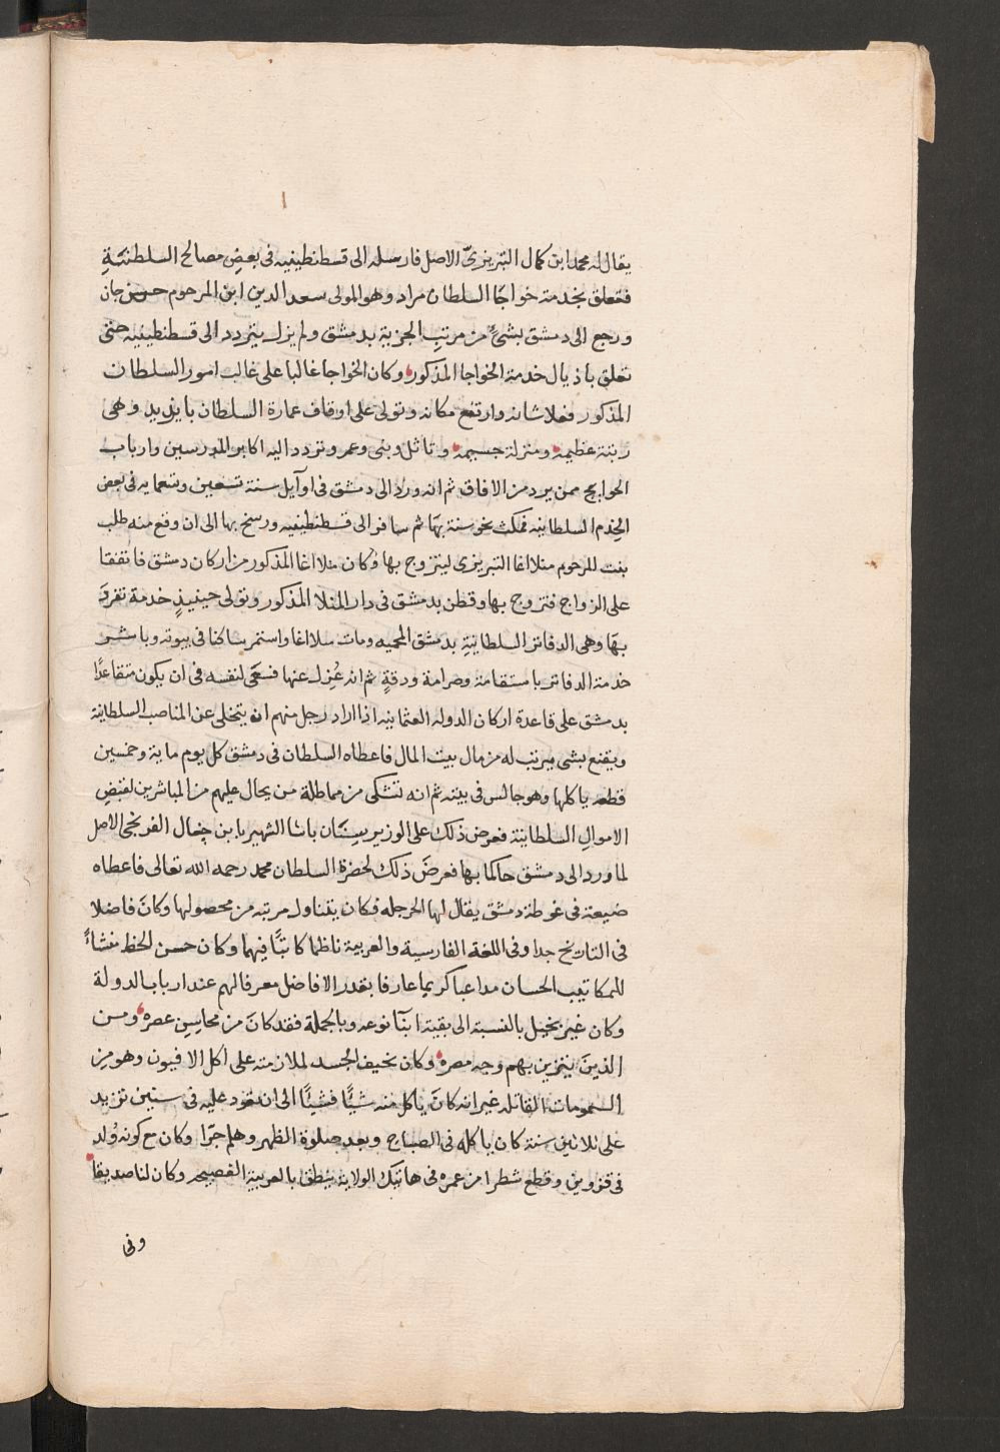 يقال له محمد ابن كمال التبريزيّ الاصل فارسله الى قسطنطينيه فى بعض مصالح السلطنةِ
فتعلق بخدمة خواجا السلطان مراد وهو المولى سعد الدين ابن المرحوم حسن جان
ورجع الى دمشق بشئٍ من مرتب الجزية بدمشق ولم يزل يتردد الى قسطنطينيه حتى
تعلق باذيال خدمة الخواجا المذكور وكان الخواجا غالبا على غالب امور السلطان
المذكور فعلا شانه وارتفع مكانه وتولى على اوقاف عمارة السلطان بايزيد وهى
رتبة عظيمه ومنزلة جسيمه وتاثل وبنى وعمر وتردد اليه اكابر المدرسين وارباب
الحوايج ممن يرد من الافاق ثم انه ورد الى دمشق فى اوآيل سنة تسعين وتسعمايه فى بعض
الخدم السلطانيه فمكث نحو سنة بها ثم سافر الى قسطنطينيه ورسخ بها الى ان وقع منه طلب
بنت المرحوم منلا اغا التبريزى ليتزوج بها وكان منلا اغا المذكور من اركان دمشق فاتفقا
على الزواج فتزوج بها وقطن بدمشق فى دار المنلا المذكور وتولى حينيذٍ خدمة تعرف
بها وهى الدفاتر السلطانيةِ بدمشق المحميه ومات منلا اغا واستمر ساكنا فى بيوته وباشر
خدمة الدفاتر باستقامة وصرامة ودقةٍ ثم انه عُزل عنها فسعى لنفسه فى ان يكون متقاعدًا
بدمشق على قاعدة اركان الدوله العثمانيه اذا اراد رجل منهم ان يتخلى عن المناصب السلطانية
ويقنع بشى يرتب له من مال بيت المال فاعطاه السلطان فى دمشق كل يوم ماية وخمسين
قطعه ياكلها وهو جالس فى بيته ثم انه تشكى من مماطلة من يحال عليهم من المباشرين لقبضِ
الاموالِ السلطانية فعرض ذلك على الوزير سِنَان باشا الشهير بابن جغال الفرنجى الاصل
لما ورد الى دمشق حاكما بها فعرضَ ذلك لحضرة السلطان محمد رحمه الله تعالى فاعطاه
ضيعة فى غوطة دمشق يقال لها الحرجله فكان يتناول مرتبه من محصولها وكانَ فاضلا
فى التاريخ جدا وفى اللغة الفارسية والعربية ناظما كاتبًا فيهما وكان حسن الخط منشاءً
للمكاتيب الحسان مداعبا كريما عارفا بقدر الافاضل معرفا لهم عند ارباب الدولة
وكان غير بخيل بالنسبة الى بقية ابنآ نوعه وبالجملة فقد كانَ من محاسِنِ عصره ومن
الذين يتزين بهم وجه مصره وكان نحيف الجسد لملازمته على اكل الافيون وهو من
السمومات القاتله غير انه كانَ ياكل منه شيًا فشيًا الى ان تعود عليه فى سنين تزيد
على ثلاثين سنة كان ياكله فى الصباح وبعد صلوة الظهر وهلم جرّا وكان مع كونه وُلد
فى قزوين وقطع شطرا من عمره فى هاتيك الولاية ينطق بالعربية الفصيحه وكان لنا صديقا
وفى